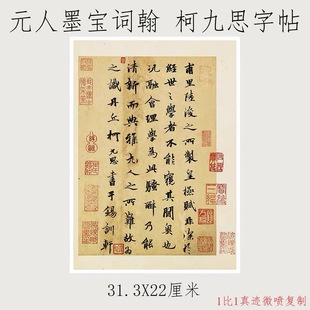 元人墨宝词翰 柯九思字帖
甫里陸淩之所製皇極賦殊深於
經世之學者不能窺其閫奥也
況融會理學為此騷辭乃能
清新而典雅尤人之所難故為
之識丹丘柯九思書于錫訓軒
31.3X22厘米
1比1真迹微喷复制